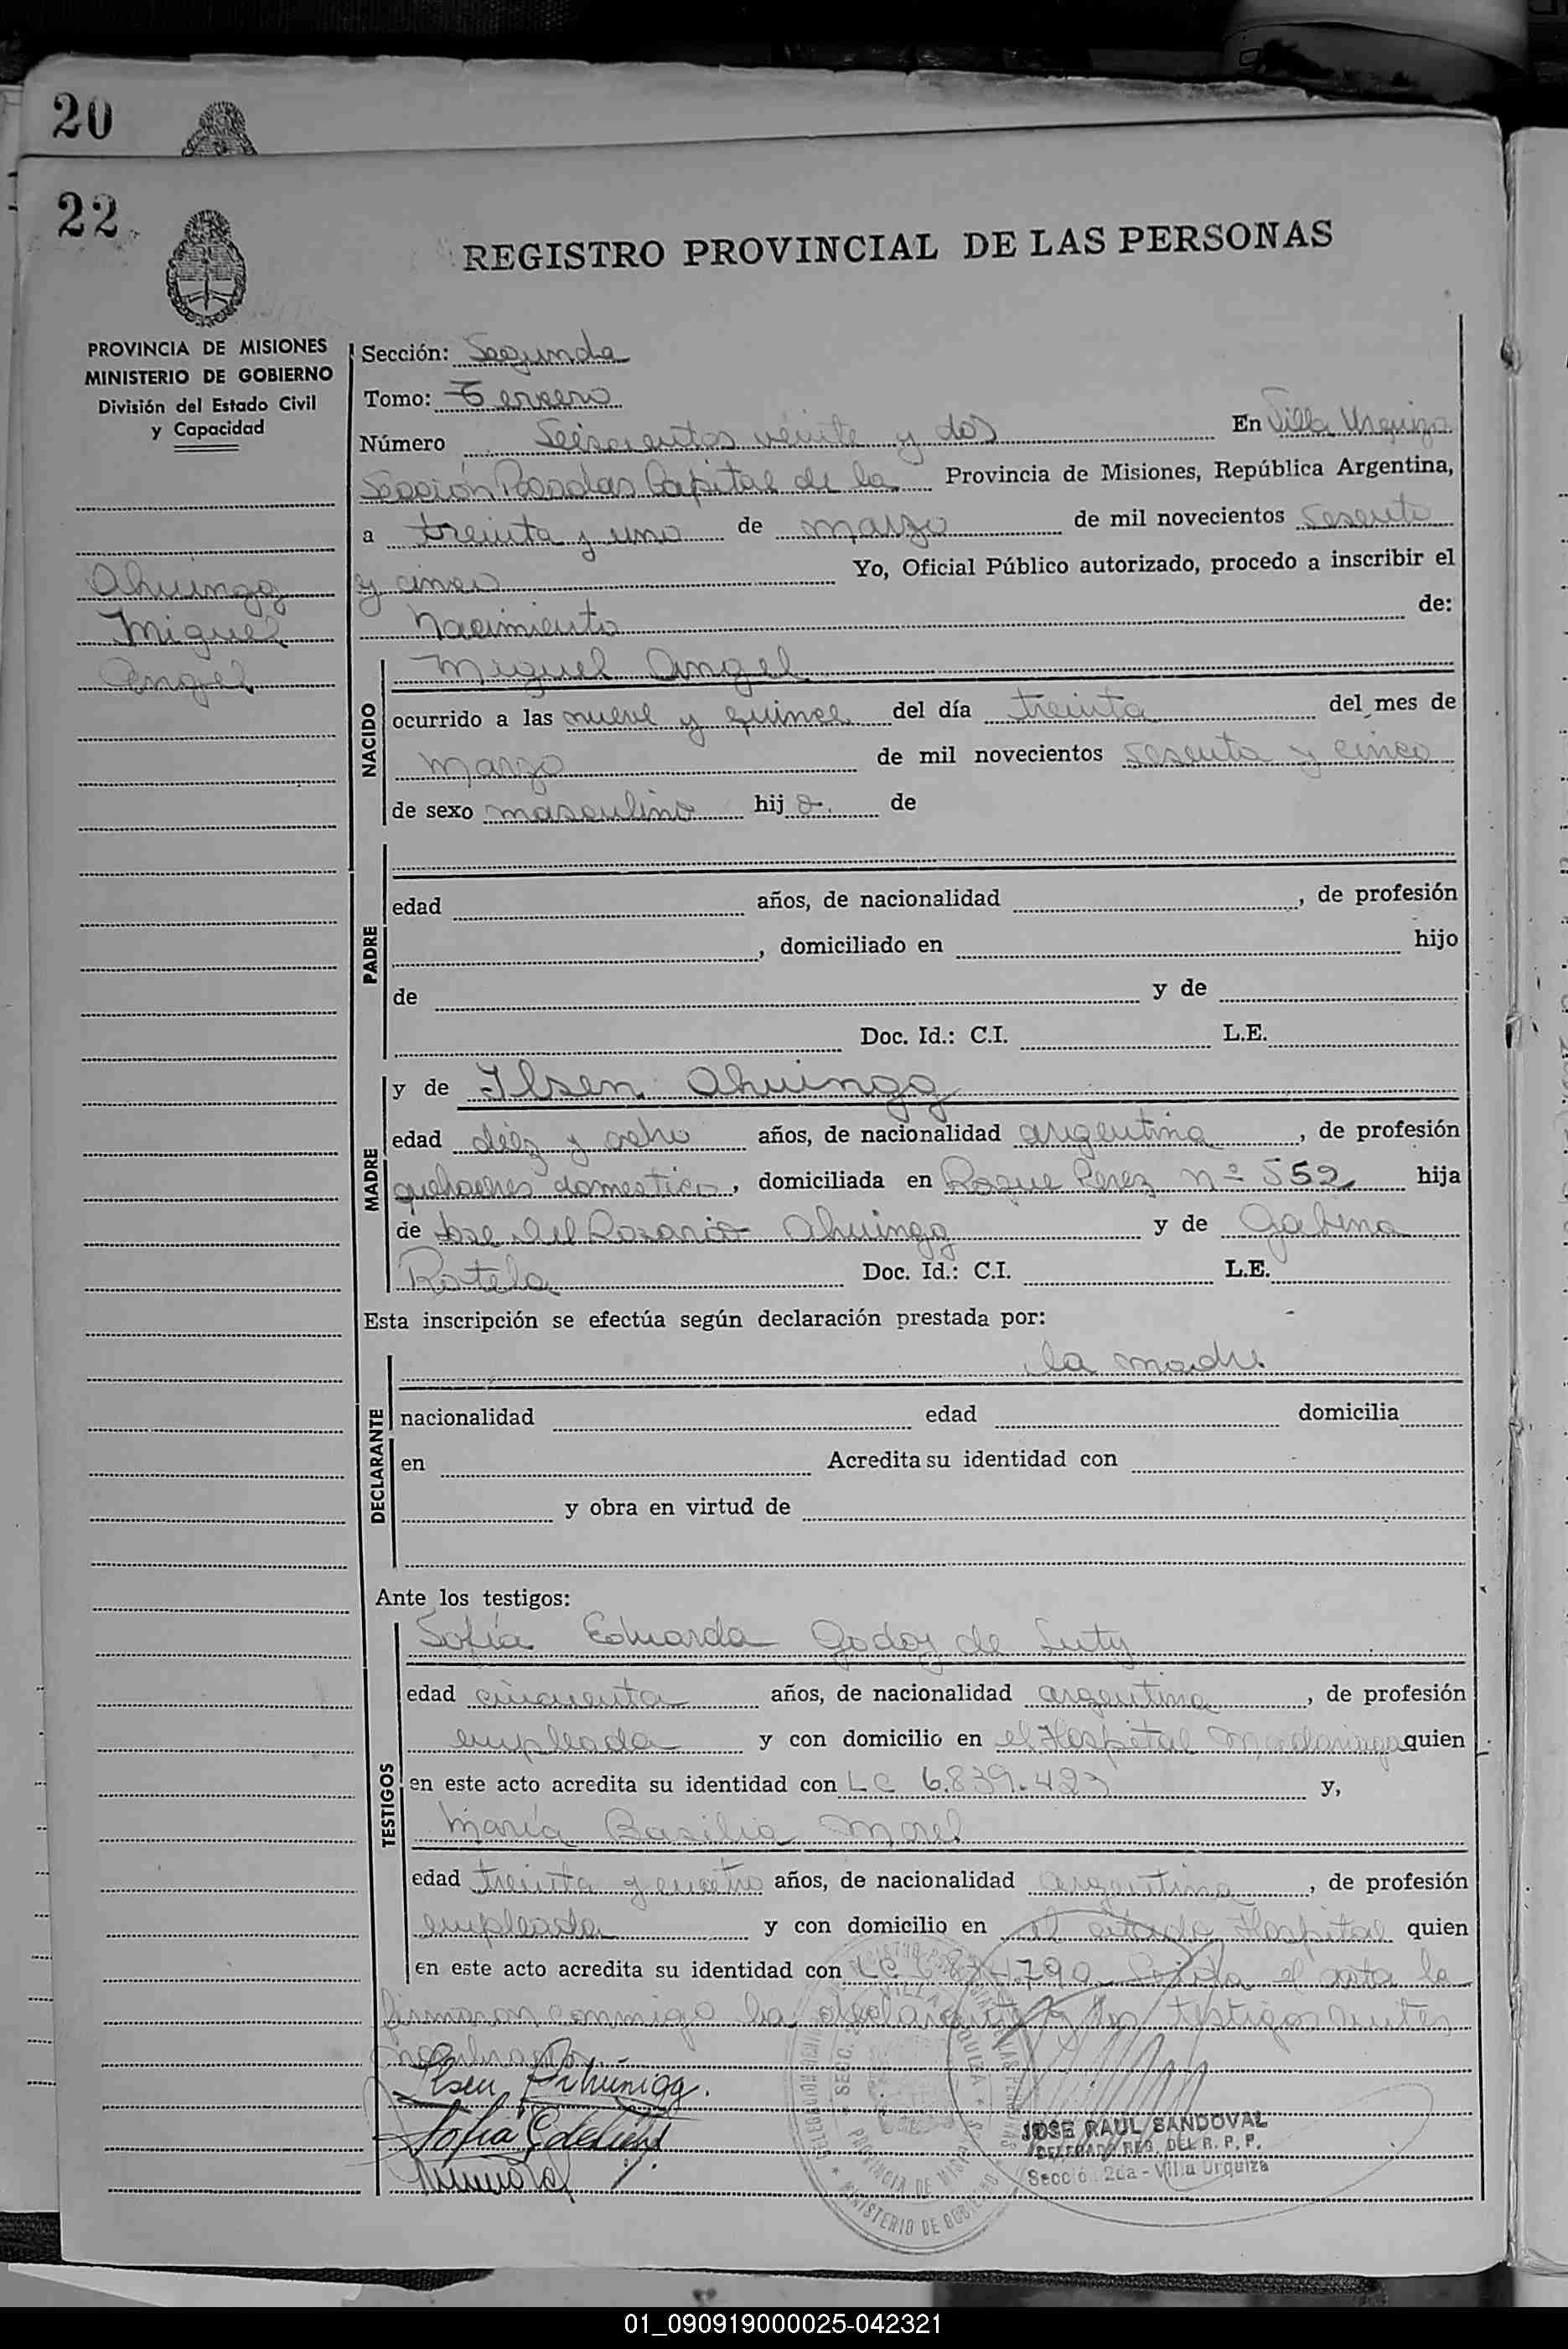 20
22
REGISTRO PROVINCIAL DE LAS PERSONAS
PROVINCIA DE MISIONES
MINISTERIO DE GOBIERNO
División del Estado Civil
y Capacidad
Ahuinga
Miguel
Angel
Sección: Segunda
Tomo: Tercero
Número Seiscientos veinte y dos En Villa Urquiza
Sección Posadas Capital de la Provincia de Misiones, República Argentina,
a treinta y uno de marzo de mil novecientos sesenta
y cinco Yo, Oficial Público autorizado, procedo a inscribir el
Nacimiento de:
NACIDO
Miguel Angel
ocurrido a las nueve y quince del día treinta del mes de
marzo de mil novecientos sesenta y cinco
de sexo masculino hij o. de
PADRE
edad años, de nacionalidad , de profesión
, domiciliado en hijo
de y de
Doc. Id.: C.I. L.E.
MADRE
y de Ilsen Ahuinga
edad diez y ocho años, de nacionalidad argentina , de profesión
quehaceres domestico, domiciliada en Roque Perez nº 552 hija
de Jose del Rosario Ahuinga y de Gabina
Rotela Doc. Id.: C.I. L.E.
Esta inscripción se efectúa según declaración prestada por:
DECLARANTE
la madre
nacionalidad edad domicilia
en Acredita su identidad con
y obra en virtud de
Ante los testigos:
TESTIGOS
Sofía Eduarda Godoy de
edad cincuenta años, de nacionalidad argentina , de profesión
empleada y con domicilio en el Hospital Madariaga quien
en este acto acredita su identidad con LC 6.839.423 y,
María Basilia Morel
edad treinta y cuatro años, de nacionalidad argentina , de profesión
empleada y con domicilio en el citado Hospital quien
en este acto acredita su identidad con LC el acta la
firmaron conmigo la declarante y los testigos antes
nombrados
Ilsen Ahuinga.
Sofia
JOSE RAUL SANDOVAL
DELEGADO REG. DEL R. P. P.
Secció. 2da - Villa Urquiza
MINISTERIO DE GOBIERNO
PROVINCIA DE MISIONES
01_090919000025-042321